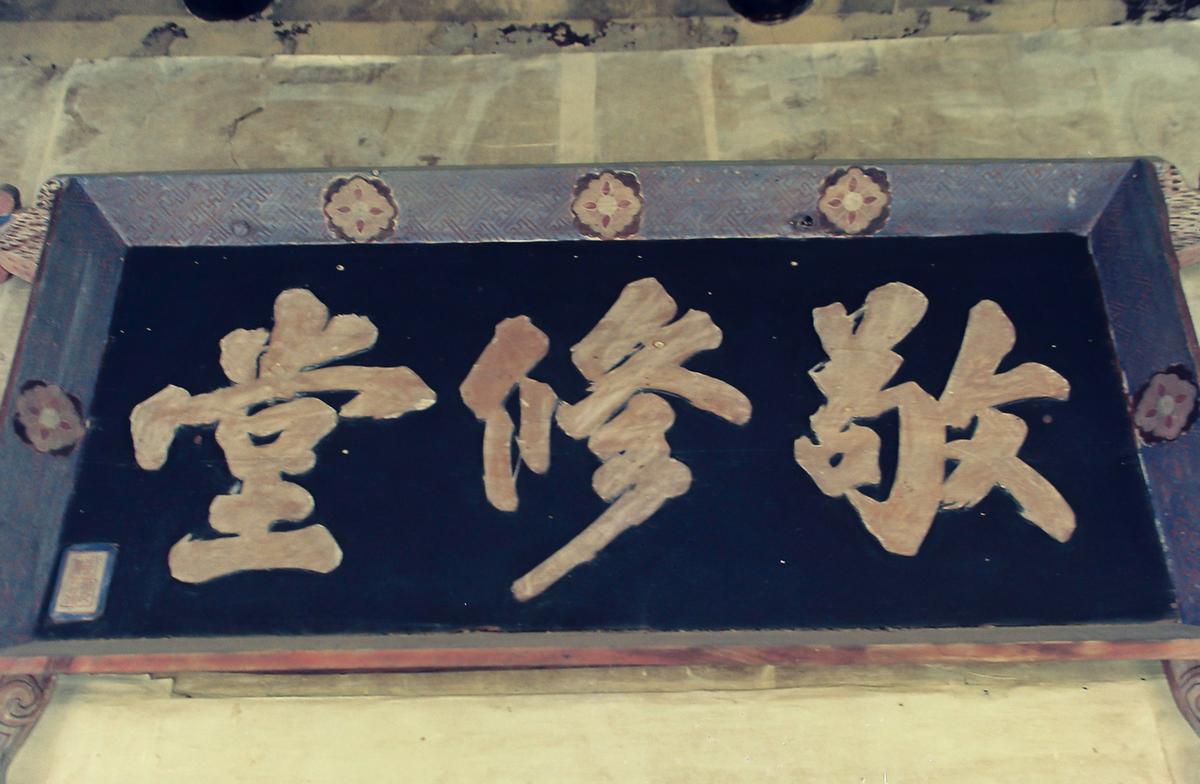 敬修堂